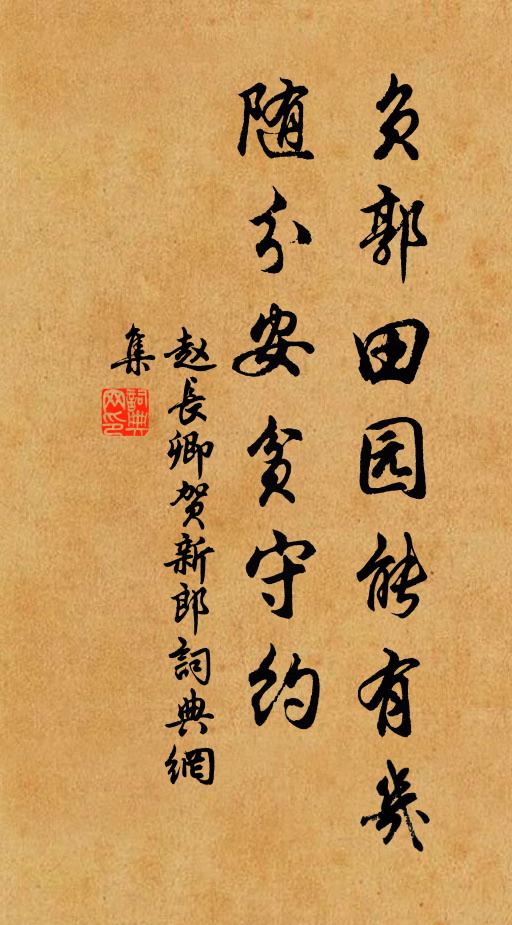 负郭田园能有几
随分安贫守约
赵长卿贺新郎詞典網
集
詞典
网印